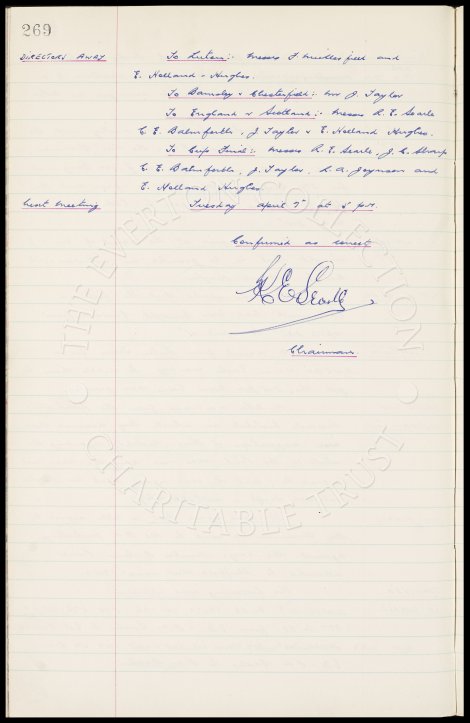 269
DIRECTORS AWAY To Luton:- Messrs F Micklesfield and
E. Holland-Hughes.
To Barnsley & Chesterfield:- Mr J. Taylor
To England v Scotland:- Messrs R. E. Searle
C. E. Balmforth, J Taylor & E Holland Hughes.
To Cup Final:- Messrs R. E. Searle, J. C. Sharp
C. E. Balmforth, J. Taylor, R. A. Joynson and
E. Holland Hughes
Next Meeting Tuesday April 7th at 5 pm
Confirmed as correct
R E Searle
Chairman
THE EVERTON COLLECTION
CHARITABLE TRUST